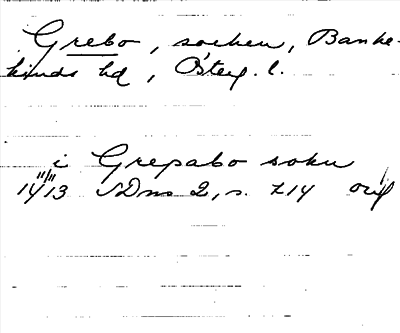 Grebo, socken, Banke-
kinds hd, Österg. l.
i Grepabo sokn
14 11/11 13 SDns 2, s. 214 orig